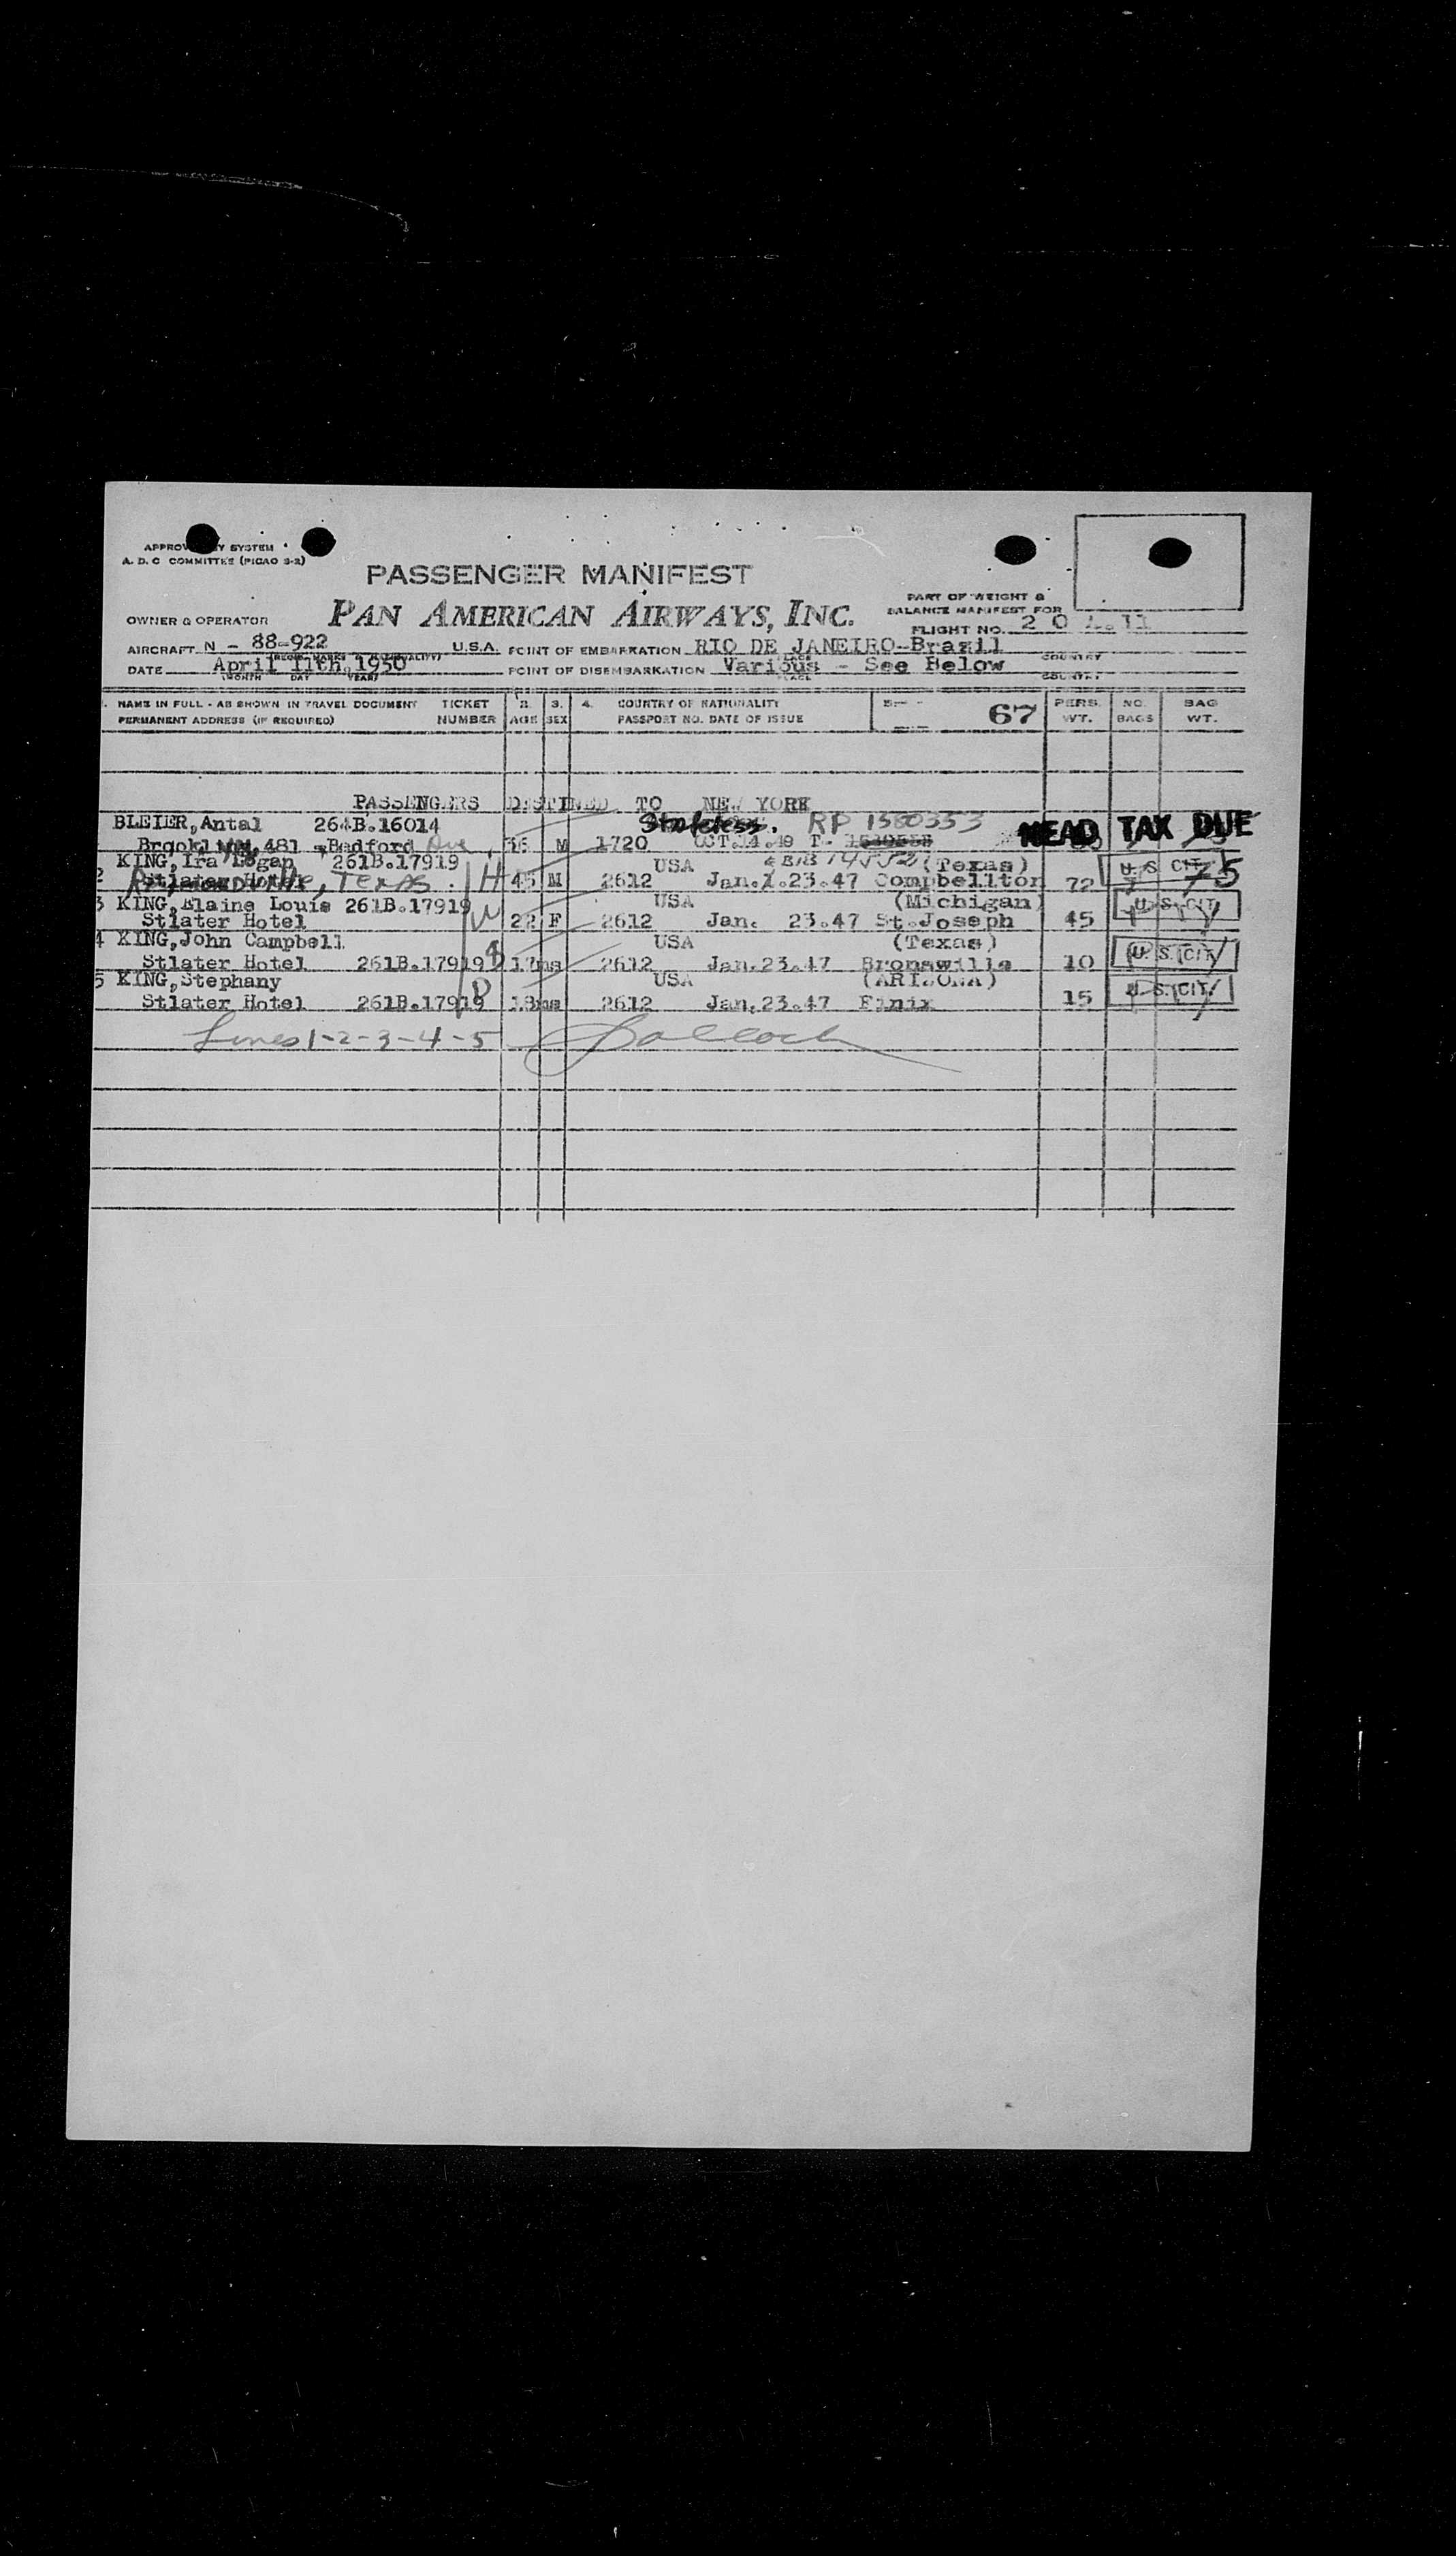 APPROV Y SYSTEM
A. D. C COMMITTEE (PICAO S-2)
PASSENGER MANIFEST
PAN AMERICAN AIRWAYS, INC.
PART OF WEIGHT &
BALANCE MANIFEST FOR
OWNER & OPERATOR
FLIGHT NO. 2 0
AIRCRAFT N - 88-922 U.S.A. POINT OF EMBARKATION RIO DE JANEIRO-Brazil
COUNTRY
DATE April 11th.1950 POINT OF DISEMBARKATION Various - See Below
(MONTH DAY YEAR) PLACE COUNTRY
NAME IN FULL - AS SHOWN IN TRAVEL DOCUMENT TICKET 2. 3. 4. COUNTRY OF NATIONALITY 5. 67 PERS. NO. BAG
PERMANENT ADDRESS (IF REQUIRED) NUMBER AGE SEX PASSPORT NO. DATE OF ISSUE WT. BAGS WT.
PASSENGERS DESTINED TO NEW YORK
BLEIER,Antal 264B.16014 Stateless. RP 1380353
481 Bedford Ave M 1720 OCT.14.49 T- HEAD TAX DUE
KING,Ira Logan 261B.17919 USA (Texas) U. S. CIT.
2 Stlater Hotel Raymondville, Texas. H 45 M 2612 Jan. 23.47 Compbellton 72 75
3 KING,Elaine Louis 261B.17919 USA (Michigan) U. S. CIT.
Stlater Hotel W 22 F 2612 Jan. 23.47 St.Joseph 45
4 KING,John Campbell USA (Texas) U. S. CIT.
Stlater Hotel 261B.17919 17ms 2612 Jan.23.47 Bronswille 10
5 KING,Stephany USA (ARIZONA) U. S. CIT.
Stlater Hotel 261B.17919 D 18ms 2612 Jan.23.47 Finix 15
Lines 1-2-3-4-5